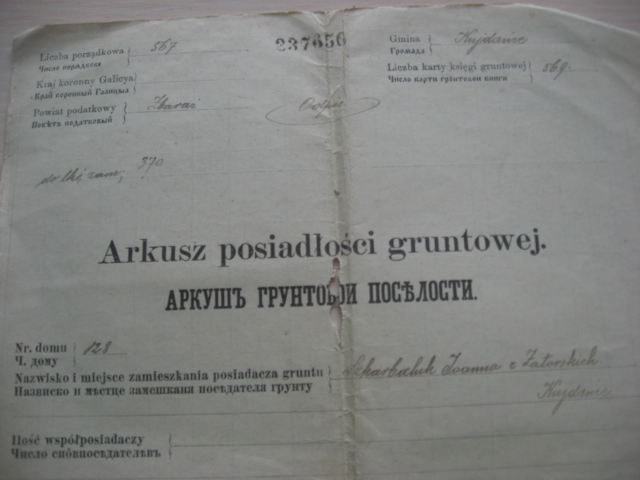 Liczba porządkowa 567
Число порядкове
237656
Gmina Kujdańce
Громада
Kraj koronny Galicya
Край коронный Галиція
Liczba karty księgi gruntowej 569.
Число карти ґрунтовои книги
Powiat podatkowy Zbaraż
Повѣтъ податковый
Odpis
370
Arkusz posiadłości gruntowej.
АРКУШЪ ГРУНТОВОИ ПОСѢЛОСТИ.
Nr. domu 128
Ч. дому
Nazwisko i miejsce zamieszkania posiadacza gruntu Szkarbaluk Joanna z Zatorskich
Назвиско и мѣстце замешканя посѣдателя грунту Kujdańce
Ilość współposiadaczy
Число спôвпосѣдателѣвъ